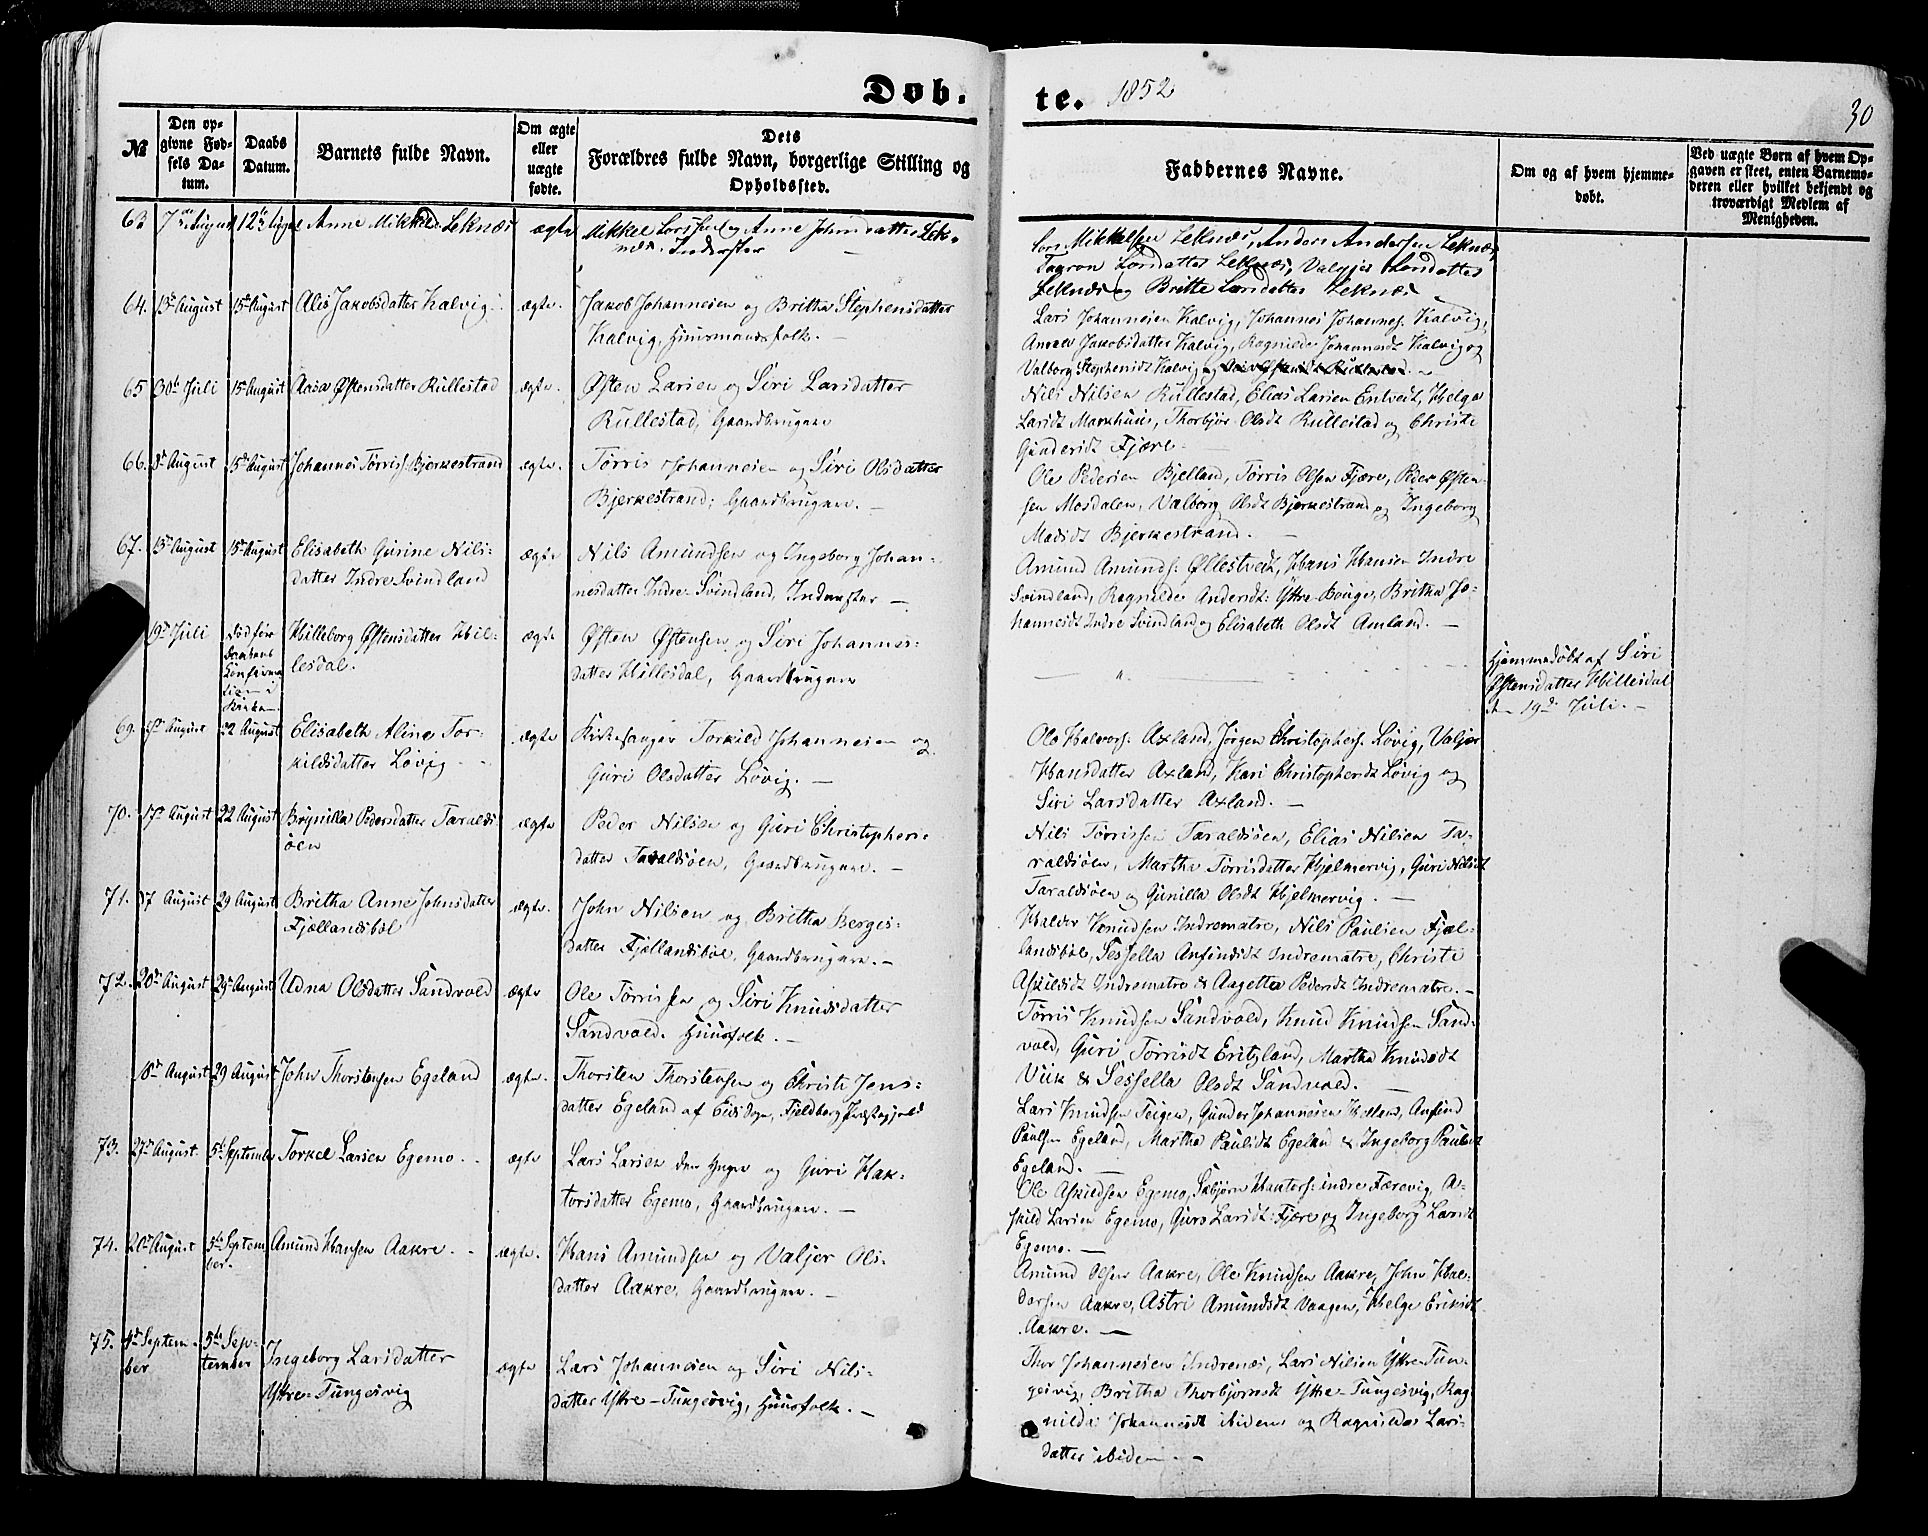 Døb-
te. 1852
30
№
Den op-
givne Fød-
sels Da-
tum.
Daabs
Datum.
Barnets fulde Navn.
Om ægte
eller
uægte
fødte.
Dets
Forældres fulde Navn, borgerlige Stilling og
Opholdssted.
Faddernes Navne.
Om og af hvem hjemme-
døbt.
Ved uægte Børn af hvem Op-
gaven er skeet, enten Barnemo-
deren eller hvilket bekjendt og
troværdigt Medlem af
Menigheden.
63 7de August 12te August Anne Leknæs ægte
Mikkel Larssen og Anne Johnsdatter Lek-
næs. Inderster
Lars Mikkelsen Leknæs, Anders Andersen Leknæs,
Larsdatter Leknæs, Larsdatter
Leknæs og Britte Larsdatter Leknæs
64. 13de August 15de August Alis Jakobsdatter Kalvig. ægte.
Jakob Johannesen og Britha Stephensdatter
Kalvig, Huusmandsfolk. -
Lars Johannesen Kalvig, Johannes Johannes. Kalvig,
Jakobsdatter Kalvig, Ragnilde Johannesdt Kalvig og
Valborg Stephensdt Kalvig
65 30te Juli 15 August Aasa Østensdatter Rullestad ægte.
Østen Larsen og Siri Larsdatter
Rullestad, Gaardbrugere
Nils Nilsen Rullestad, Elias Larsen Entvedt, Helga
Larsdt Markhuus, Thorbjør Olsdt Rullestad og Christi
Gundersdt Fjære
66. 8de August 15de August Johannes Tørris. Bjerkestrand ægte.
Tørris Johannesen og Siri Olsdatter
Bjerkestrand, Gaardbrugere. -
Ole Pedersen Bjelland, Tørris Olsen Fjære, Peder Østen-
sen Mosdalen, Valborg Olsdt Bjerkestrand og Ingeborg
Madsdt Bjerkestrand. -
67. 13de August 15de August Elisabeth Gurine Nils- ægte
datter Indre Svindland
Nils Amundsen og Ingeborg Johan-
nesdatter Indre Svindland, Inderster -
Amund Amunds. Øllestvedt, Hans Hansen Indre
Svindland, Ragnilde Andersdt: Yttre Bouge, Britha Jo-
hannesdt Indre Svindland og Elisabeth Olsdt Amland. -
19de Juli Død før
Daabens
Confirma
tion i
Kirken
Hilleborg Østensdatter Hil-
lesdal. ægte
Østen Østensen og Siri Johannes-
datter Hillesdal, Gaardbrugere
Hjemmedøbt af Siri
Østensdatter Hillesdal
den 19de Juli. -
69. August 22 August Elisabeth Aline Tor-
kildsdatter Løvig ægte
Kirkesanger Torkild Johannesen og
Guri Olsdatter Løvig. -
Ole Halvors. Axland, Jørgen Christophers. Løvig, Valjer
Hansdatter Axland, Kari Christophersdt Løvig og
Siri Larsdatter Axland. -
70. 17de August 22 August Brynilla Pedersdatter Taralds
øen ægte
Peder Nilsen og Guri Christophers-
datter Taraldsøen, Gaardbrugere. -
Nils Tørrissen Taraldsøen, Elias Nilsen Ta-
raldsøen, Martha Tørrisdatter Hjelmervig, Guri Nilsdt
Taraldsøen og Gunilla Olsdt Hjelmervig. -
71. 17 August 29 August Britha Anne Johnsdatter
Fjællandsbøl ægte.
John Nilsen og Britha Berges-
datter Fjællandsbøl, Gaardbrugere. -
Halder Knudsen Indrematre, Nils Paulsen Fjæl-
landsbøl, Sessella Anfindsdt Indrematre, Christi
Askildsdt Indrematre & Aagetta Pedersdt Indrematre. -
72. 20de August 29de August Udna Olsdatter Sandvold ægte
Ole Tørrissen og Siri Knudsdatter
Sandvold. Huusfolk. -
Tørris Knudsen Sandvold, Knud Knudsen Sand-
vold, Guri Tørrisdt Eritzland, Martha Knudsdt
Viik & Sessella Olsdt Sandvold. -
18de August 29 August John Thorstensen Egeland ægte.
Thorsten Thorstensen og Christi Jens-
datter Egeland af Eids Sogn, Fjeldberg Præstegjeld
Lars Knudsen Teigen, Gunder Johannesen Helland, Anfind
Paulsen Egeland, Martha Paulsdt Egeland & Ingeborg Paulsdt
Egeland. -
73. 27de August 5te September Torkel Larsen Egemo. ægte
Lars Larsen den yngre og Guri Hak-
torsdatter Egemo, Gaardbrugere. -
Ole Askildsen Egemo, indre Færevig, A-
skild Larsen Egemo, Guro Larsdt: Fjære og Ingeborg Larsdt
Egemo. -
74. August 5te Septem
ber. Amund Hansen Aakre. ægte.
Hans Amundsen og Valjer Ols-
datter Aakre, Gaardbrugere. -
Amund Olsen Aakre, Ole Knudsen Aakre, John Hal-
dorsen Aakre, Astri Amundsdt Vaagen, Helge Eriksdt
Aakre. -
75. 4de Septem-
ber 5te Sep-
tember Ingeborg Larsdatter
Yttre-Tungesvig ægte
Lars Johannesen og Siri Nils-
datter Yttre-Tungesvig, Huusfolk. -
Thor Johannesen Indrenæs, Lars Nilsen Yttre Tun-
gesvig, Britha Thorbjørnsdt Yttre-Tungesvig, Rag-
nilda Johannesdt ibidem og Ragnilde Lars-
datter ibidem. -